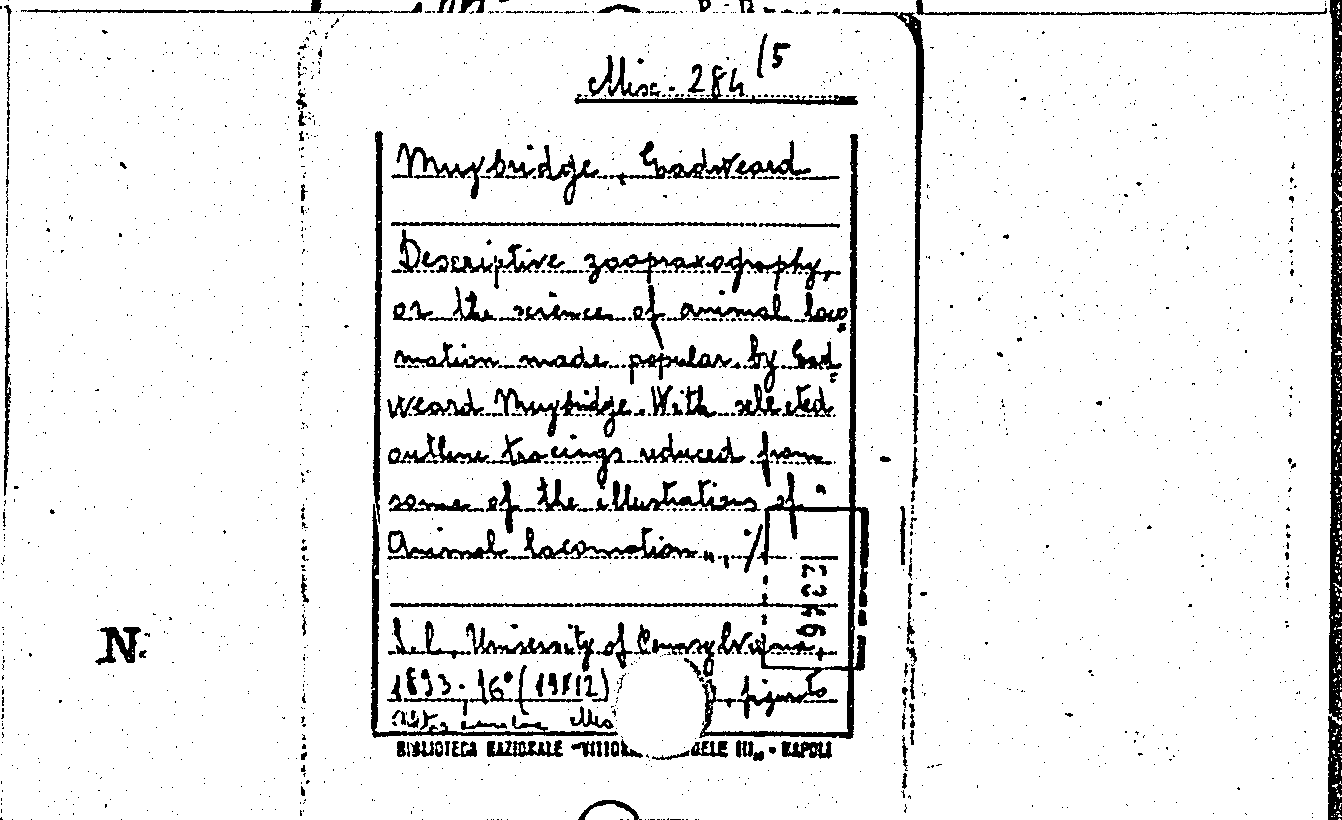 Misc. 284/5
Muybridge, Eadweard
Descriptive zoopraxography,
or the science of animal loco=
mation made popular by Ead=
weard Muybridge. With selected
outline tracings reduced from
some of the illustrations of "
Animal locomotion", /
S. l., University of Pennsylvania,
1893. 16° (19x12) , figurato
Misc
BIBLIOTECA NAZIONALE "VITTOR ELE III" - NAPOLI
N.